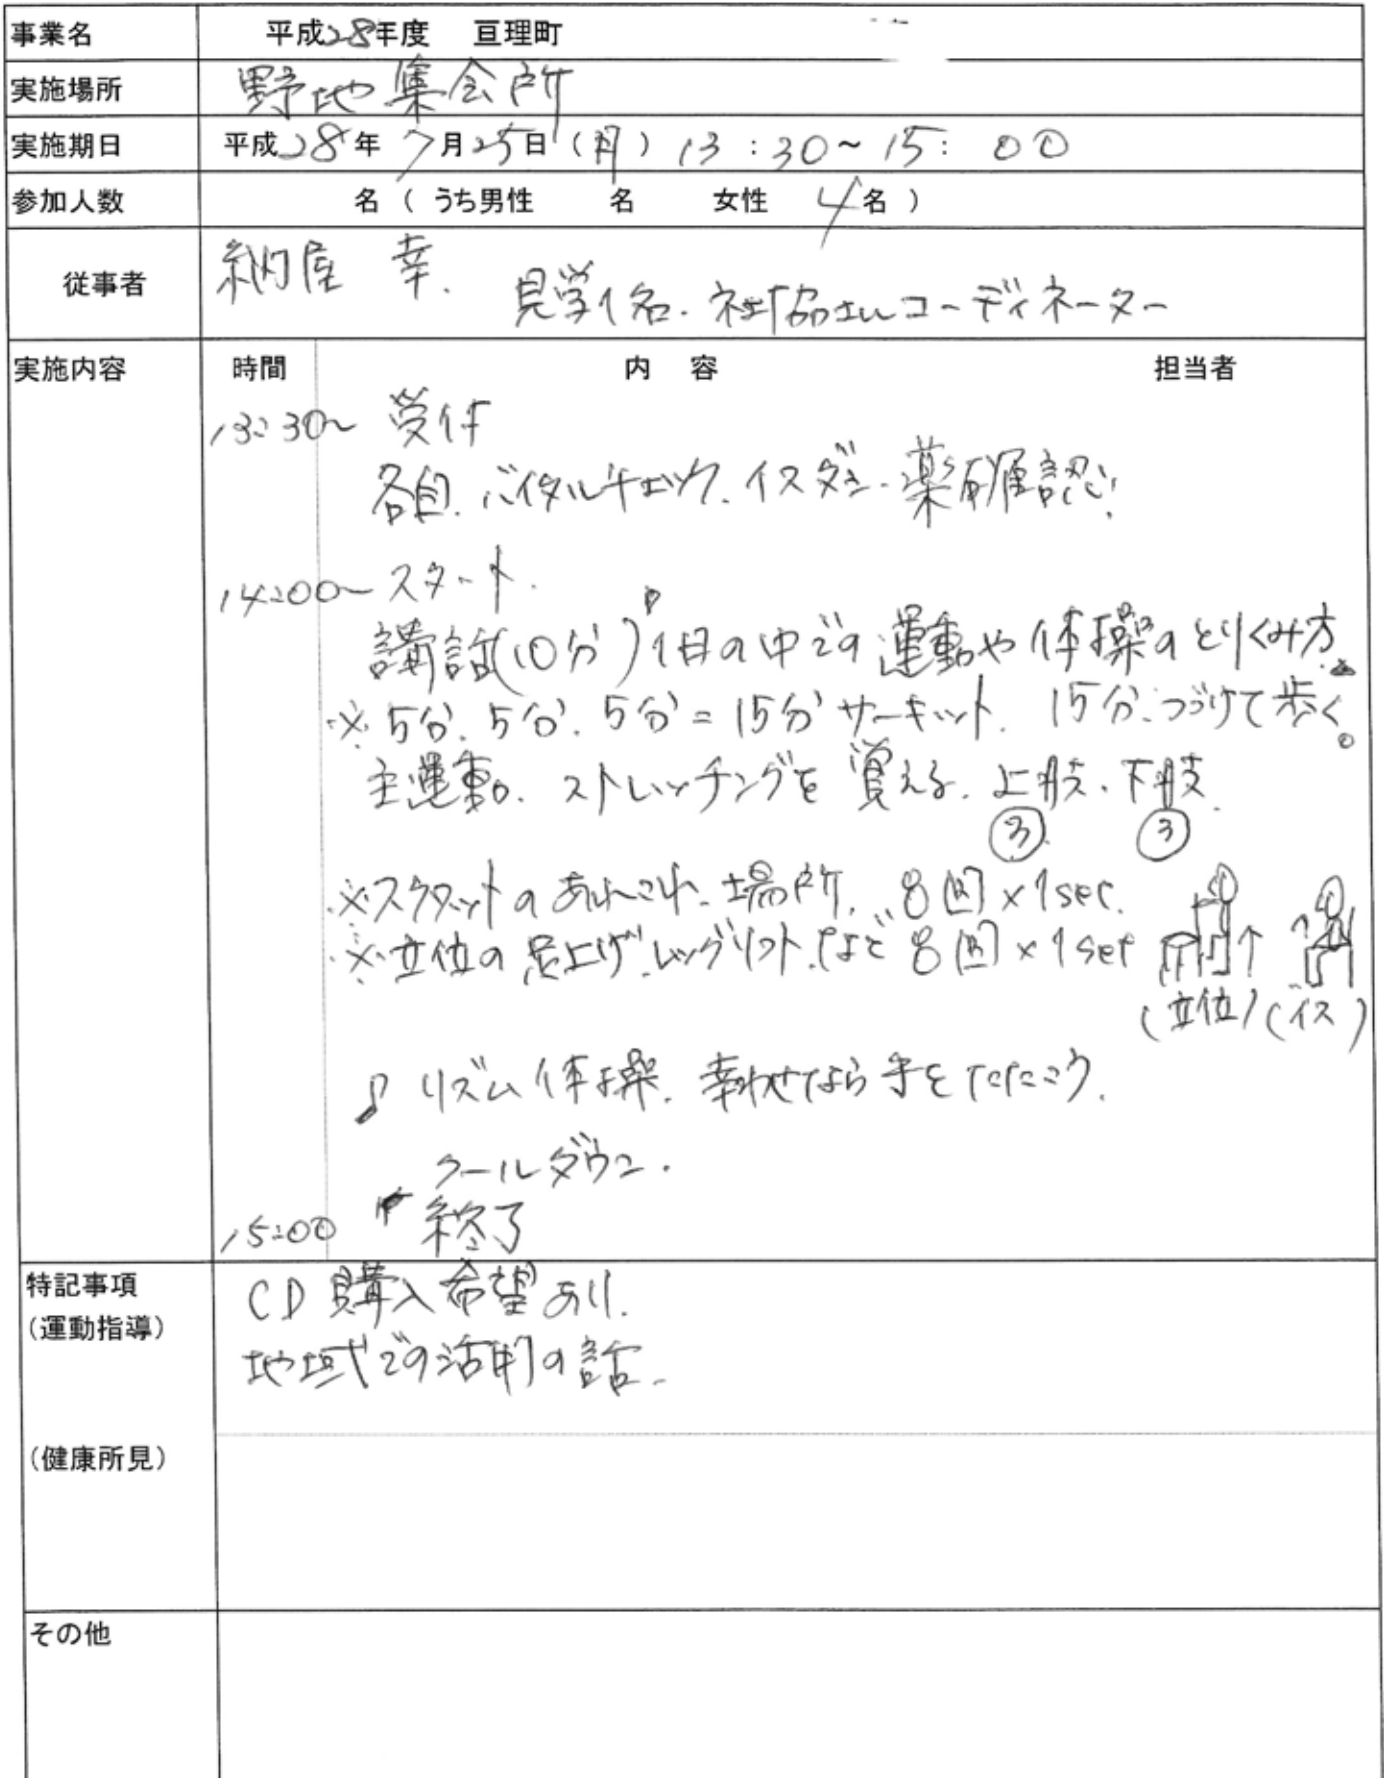 事業名 平成28年度 亘理町
実施場所 野地集会所
実施期日 平成28年7月25日(月) 13:30~15:00
参加人数 名(うち男性 名 女性 4名)
従事者 納屋 幸.
見学1名. 社協さんコーディネーター
実施内容 時間 内容 担当者
13:30~ 受付
各自. バイタルチェック. イス 薬 確認!
14:00~ スタート.
講話(10分) 1日の中での運動や体操のとりくみ方
※5分. 5分. 5分=15分サーキット. 15分つづけて歩く。
主運動. ストレッチングを覚える. 上肢. 下肢.
③ ③
※スクワットのあれこれ. 場所. 8回×1sec.
※立位の足上げ. レッグリフト. など 8回×1set
(立位) (イス)
♪ リズム体操. 幸わせなら手をたたこう.
クールダウン.
15:00 終了
特記事項
(運動指導)
CD購入希望あり.
地域での活用の話.
(健康所見)
その他